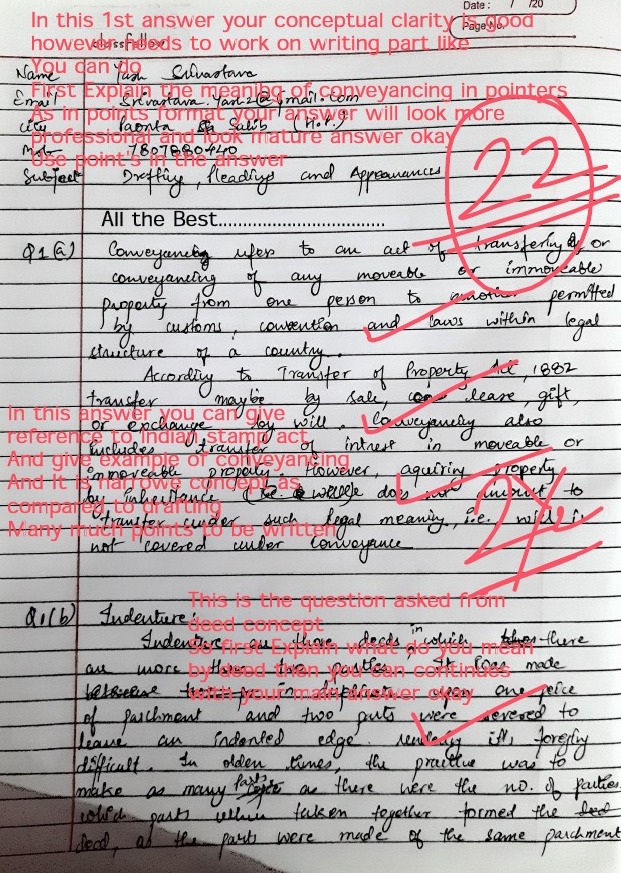 In this 1st answer your conceptual clarity is good
however needs to work on writing part like
You can do
First Explain the meaning of conveyancing in pointers
As in points format your answer will look more
professional and look mature answer okay
Use point's in the answer
Date : / /20
Page No.
classfellow
Name Yash Srivastava
Email Srivastava.yash2@gmail.com
City Paonta Sahib (H.P.)
Mob- 7807880440
Subject Drafting, Pleadings and Appearances
22
All the Best..................................
Q1(a) Conveyancing refers to an act of transferring or
conveyancing of any moveable or immoveable
property from one person to another permitted
by customs, convention and laws within legal
structure of a country.
According to Transfer of Property Act, 1882
transfer maybe by sale, lease, gift,
or exchange by will. Conveyancing also
includes transfer of intrest in moveable or
immoveable property. However, aquiring property
by inheritance (i.e. will) does not amount to
transfer under such legal meaning, i.e. will is
not covered under Conveyance
In this answer you can give
reference to Indian stamp act
And give example or conveyancing
And It is narrowe concept as
compared to drafting
Many much points to be written
2½
Q1(b) Indenture:
Indenture are those deeds in which there
are more than two parties. It was made
in duplicate upon one peice
of parchment and two parts were severed to
leave an indented edge. rendering it's forgery
difficult. In olden times, the practice was to
make as many parts as there were the no. of parties
which parts when taken together formed the
deed, as the parts were made of the same parchment
This is the question asked from
deed concept
So first Explain what do you mean
by deed then you can continues
with your main answer okay